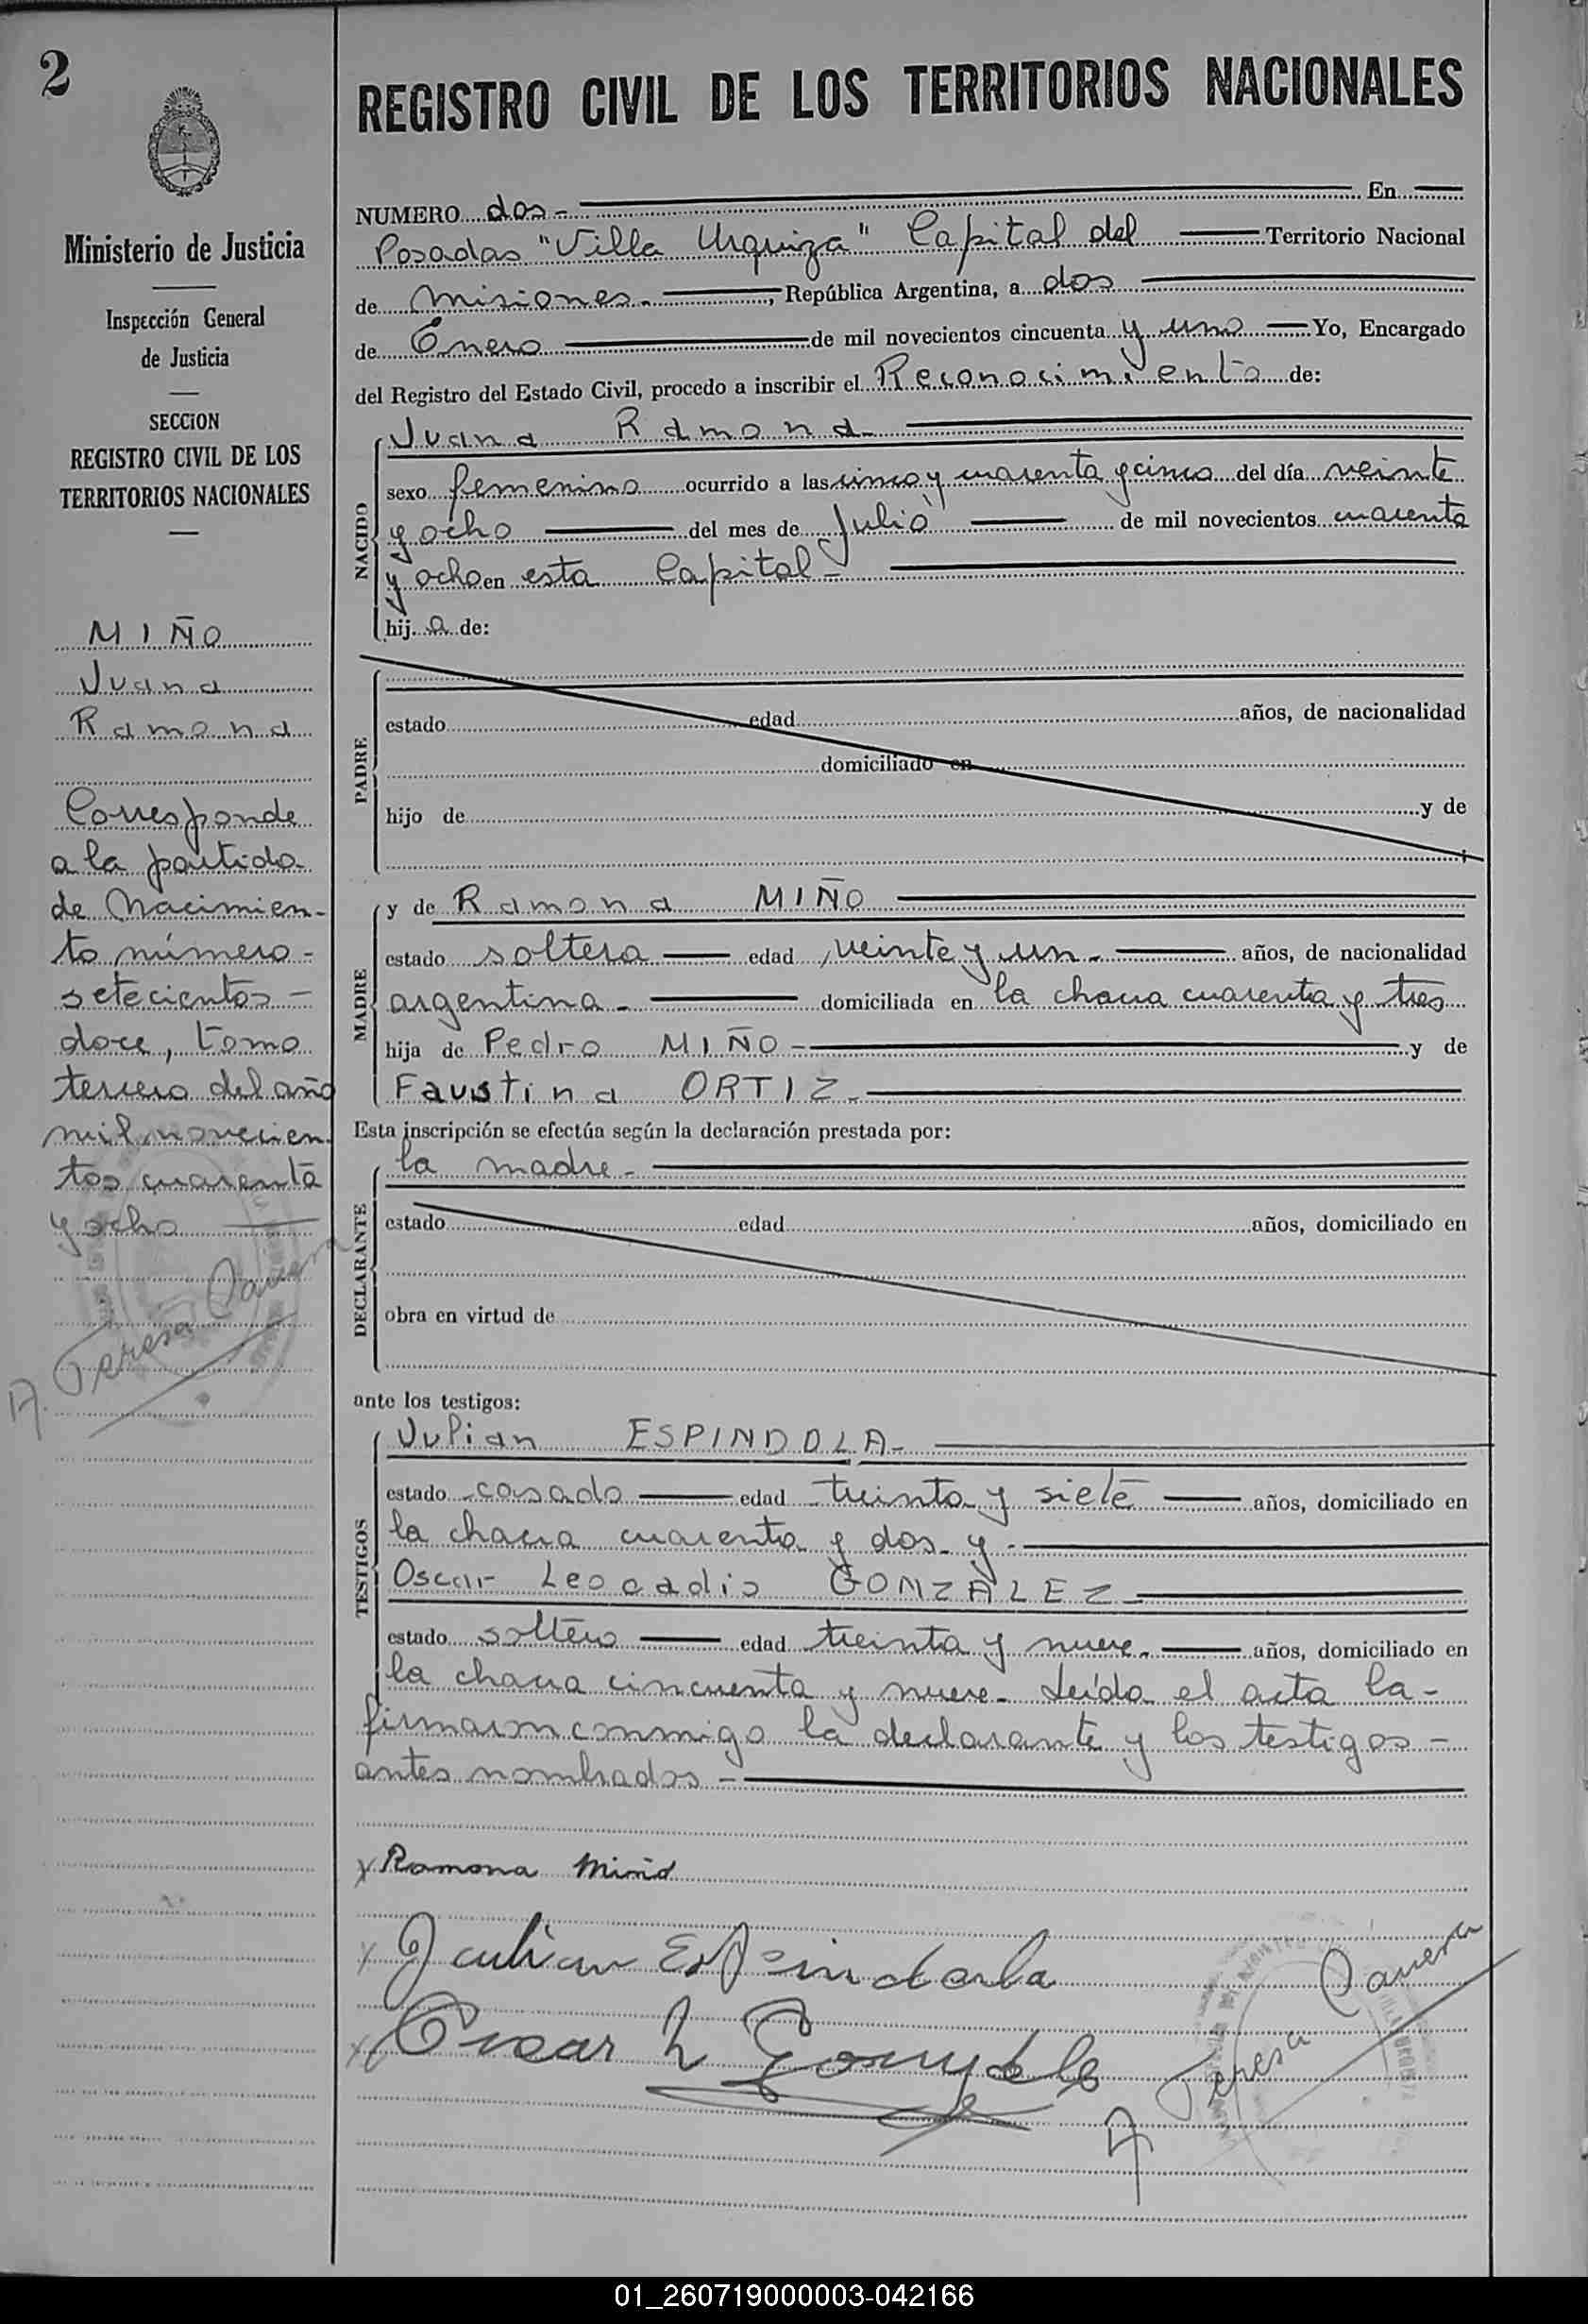 2
Ministerio de Justicia
Inspección General
de Justicia
SECCION
REGISTRO CIVIL DE LOS
TERRITORIOS NACIONALES
MIÑO
Juana
Ramona
Corresponde
a la partida
de Nacimien-
to número-
setecientos-
doce, tomo
tercero del año
mil novecien
tos cuarenta
y ocho
A. Teresa
REGISTRO CIVIL DE LOS TERRITORIOS NACIONALES
NUMERO dos- En
Posadas "Villa Urquiza" Capital del Territorio Nacional
de Misiones.-, República Argentina, a dos
de Enero de mil novecientos cincuenta y uno Yo, Encargado
del Registro del Estado Civil, procedo a inscribir el Reconocimiento de:
NACIDO
Juana Ramona-
sexo femenino ocurrido a las cinco y cuarenta y cinco del día veinte
y ocho del mes de Julio de mil novecientos cuarenta
y ocho en esta Capital-
hija de:
PADRE
estado edad años, de nacionalidad
domiciliado en
hijo de y de
MADRE
y de Ramona MIÑO
estado soltera edad veinte y un- años, de nacionalidad
argentina- domiciliada en la chacra cuarenta y tres
hija de Pedro MIÑO- y de
Faustina ORTIZ-
Esta inscripción se efectúa según la declaración prestada por:
DECLARANTE
la madre-
estado edad años, domiciliado en
obra en virtud de
ante los testigos:
TESTIGOS
Julian ESPINDOLA-
estado casado edad treinta y siete años, domiciliado en
la chacra cuarenta y dos- y-
Oscar Leocadio GONZALEZ-
estado soltero edad treinta y nueve- años, domiciliado en
la chacra cincuenta y nueve- Leída el acta la-
firmaron conmigo la declarante y los testigos-
antes nombrados-
x Ramona Miño
x Julian Espindola
x Oscar L Gonzalez
A Teresa
01_260719000003-042166